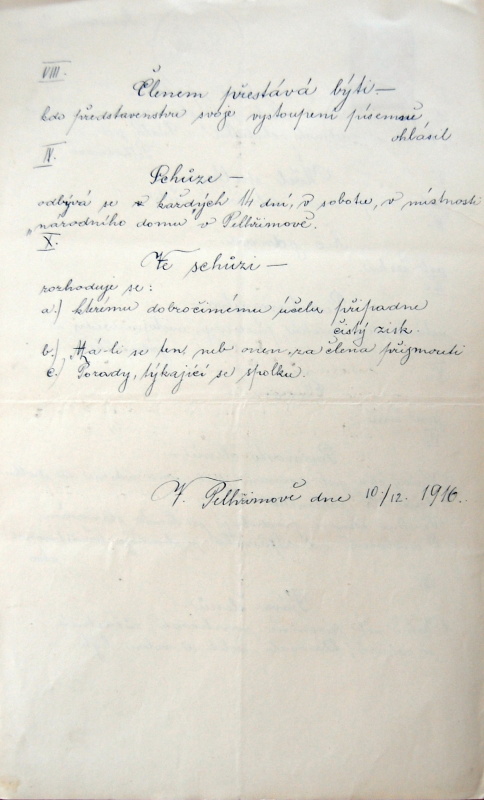 VIII.
Členem přestává býti —
kdo představenstvu svoje vystoupení písemně
ohlásil
IX.
Schůze —
odbývá se každých 14 dní, v sobotu, v místnosti
„národního domu“ v Pelhřimově.
X.
Ve schůzi —
rozhoduje se:
a.) kterému dobročinnému účelu připadne
čistý zisk.
b.) Má-li se ten neb onen, za člena přijmouti
c.) Porady, týkající se spolku.
V. Pelhřimově dne 10./12. 1916.